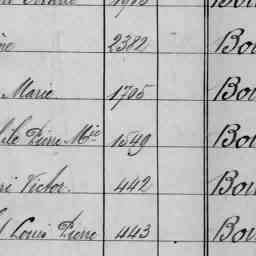 2382 Bou
Marie 1795 Bou
Pierre Mie 1549 Bou
Victor 442 Bou
Louis Pierre 443 Bou